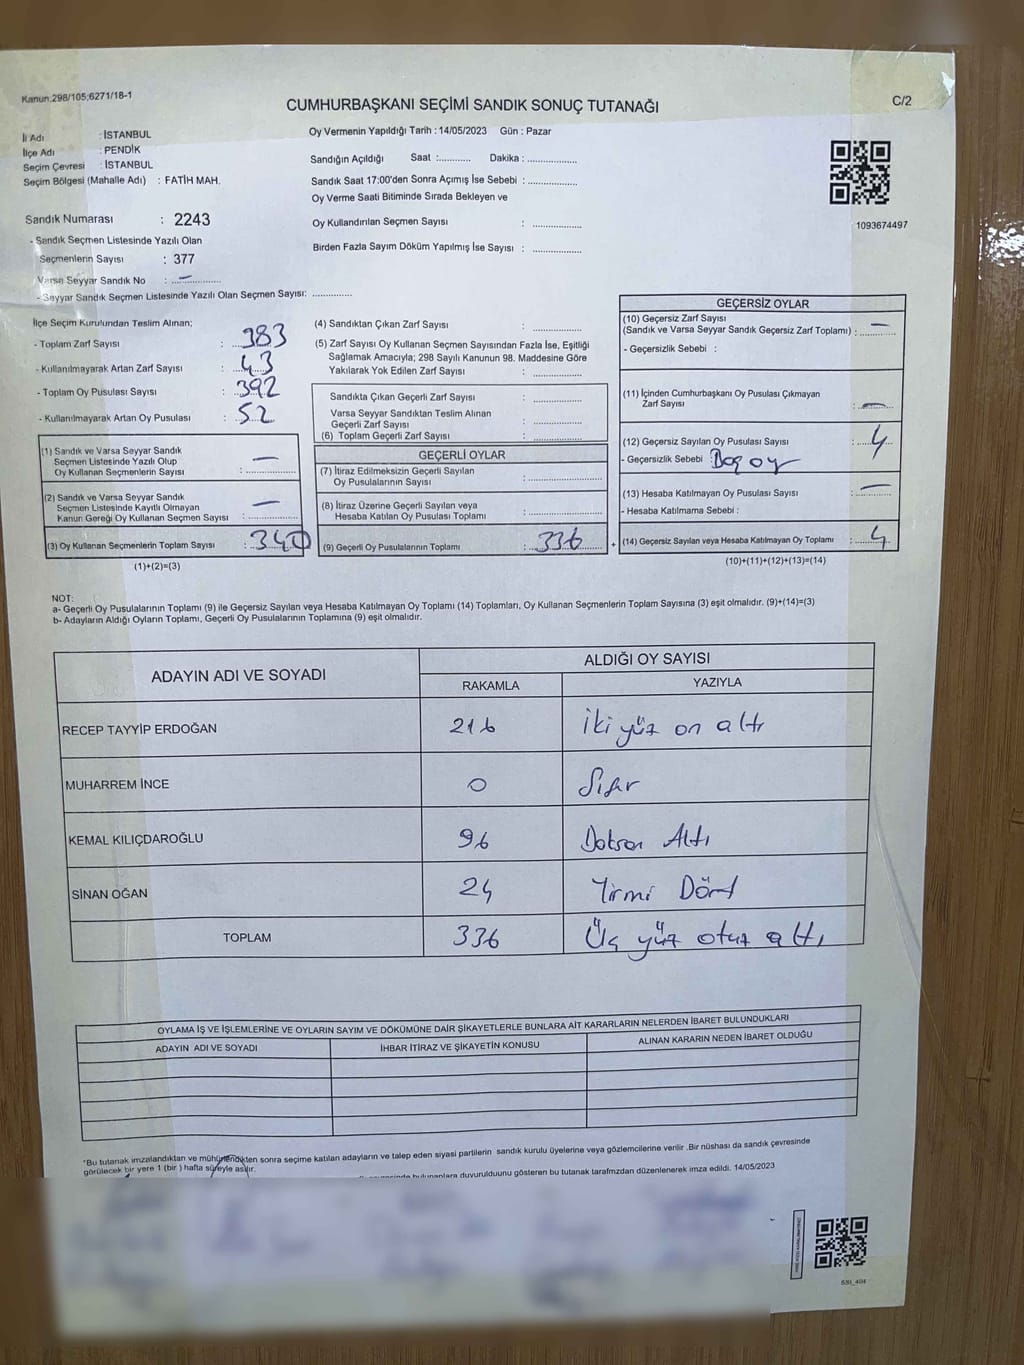 Kanun:298/105;6271/18-1
CUMHURBAŞKANI SEÇİMİ SANDIK SONUÇ TUTANAĞI
C/2
İl Adı : İSTANBUL
İlçe Adı : PENDİK
Seçim Çevresi : İSTANBUL
Seçim Bölgesi (Mahalle Adı) : FATİH MAH.
Oy Vermenin Yapıldığı Tarih : 14/05/2023 Gün : Pazar
Sandığın Açıldığı Saat :........... Dakika : .................
Sandık Saat 17:00'den Sonra Açımış İse Sebebi : .................
Oy Verme Saati Bitiminde Sırada Bekleyen ve
Oy Kullandırılan Seçmen Sayısı : .................
Birden Fazla Sayım Döküm Yapılmış İse Sayısı : .................
1093674497
Sandık Numarası : 2243
- Sandık Seçmen Listesinde Yazılı Olan
Seçmenlerin Sayısı : 377
Varsa Seyyar Sandık No : —
- Seyyar Sandık Seçmen Listesinde Yazılı Olan Seçmen Sayısı: .............
İlçe Seçim Kurulundan Teslim Alınan;
- Toplam Zarf Sayısı : 383
- Kullanılmayarak Artan Zarf Sayısı : 43
- Toplam Oy Pusulası Sayısı : 392
- Kullanılmayarak Artan Oy Pusulası : 52
(1) Sandık ve Varsa Seyyar Sandık
Seçmen Listesinde Yazılı Olup
Oy Kullanan Seçmenlerin Sayısı : —
(2) Sandık ve Varsa Seyyar Sandık
Seçmen Listesinde Kayıtlı Olmayan
Kanun Gereği Oy Kullanan Seçmen Sayısı : —
(3) Oy Kullanan Seçmenlerin Toplam Sayısı : 340
(1)+(2)=(3)
(4) Sandıktan Çıkan Zarf Sayısı : .................
(5) Zarf Sayısı Oy Kullanan Seçmen Sayısından Fazla İse, Eşitliği
Sağlamak Amacıyla; 298 Sayılı Kanunun 98. Maddesine Göre
Yakılarak Yok Edilen Zarf Sayısı : .................
Sandıkta Çıkan Geçerli Zarf Sayısı : .................
Varsa Seyyar Sandıktan Teslim Alınan
Geçerli Zarf Sayısı : .................
(6) Toplam Geçerli Zarf Sayısı : .................
GEÇERLİ OYLAR
(7) İtiraz Edilmeksizin Geçerli Sayılan
Oy Pusulalarının Sayısı : .................
(8) İtiraz Üzerine Geçerli Sayılan veya
Hesaba Katılan Oy Pusulası Toplamı : .................
(9) Geçerli Oy Pusulalarının Toplamı : 336
+
GEÇERSİZ OYLAR
(10) Geçersiz Zarf Sayısı
(Sandık ve Varsa Seyyar Sandık Geçersiz Zarf Toplamı) : —
- Geçersizlik Sebebi :
(11) İçinden Cumhurbaşkanı Oy Pusulası Çıkmayan
Zarf Sayısı : —
(12) Geçersiz Sayılan Oy Pusulası Sayısı : 4
- Geçersizlik Sebebi :
(13) Hesaba Katılmayan Oy Pusulası Sayısı : —
- Hesaba Katılmama Sebebi :
(14) Geçersiz Sayılan veya Hesaba Katılmayan Oy Toplamı : 4
(10)+(11)+(12)+(13)=(14)
NOT:
a- Geçerli Oy Pusulalarının Toplamı (9) ile Geçersiz Sayılan veya Hesaba Katılmayan Oy Toplamı (14) Toplamları, Oy Kullanan Seçmenlerin Toplam Sayısına (3) eşit olmalıdır. (9)+(14)=(3)
b- Adayların Aldığı Oyların Toplamı, Geçerli Oy Pusulalarının Toplamına (9) eşit olmalıdır.
ADAYIN ADI VE SOYADI
ALDIĞI OY SAYISI
RAKAMLA YAZIYLA
RECEP TAYYİP ERDOĞAN 216 İki yüz on altı
MUHARREM İNCE 0 Sıfır
KEMAL KILIÇDAROĞLU 96 Doksan Altı
SİNAN OĞAN 24 Yirmi Dört
TOPLAM 336 Üç yüz otuz altı
OYLAMA İŞ VE İŞLEMLERİNE VE OYLARIN SAYIM VE DÖKÜMÜNE DAİR ŞİKAYETLERLE BUNLARA AİT KARARLARIN NELERDEN İBARET BULUNDUKLARI
ADAYIN ADI VE SOYADI İHBAR İTİRAZ VE ŞİKAYETİN KONUSU ALINAN KARARIN NEDEN İBARET OLDUĞU
"Bu tutanak imzalandıktan ve mühürlendikten sonra seçime katılan adayların ve talep eden siyasi partilerin sandık kurulu üyelerine veya gözlemcilerine verilir .Bir nüshası da sandık çevresinde
görülecek bir yere 1 (bir ) hafta süreyle asılır.
bulunanlara duyurulduunu gösteren bu tutanak tarafmzdan düzenlenerek imza edildi. 14/05/2023